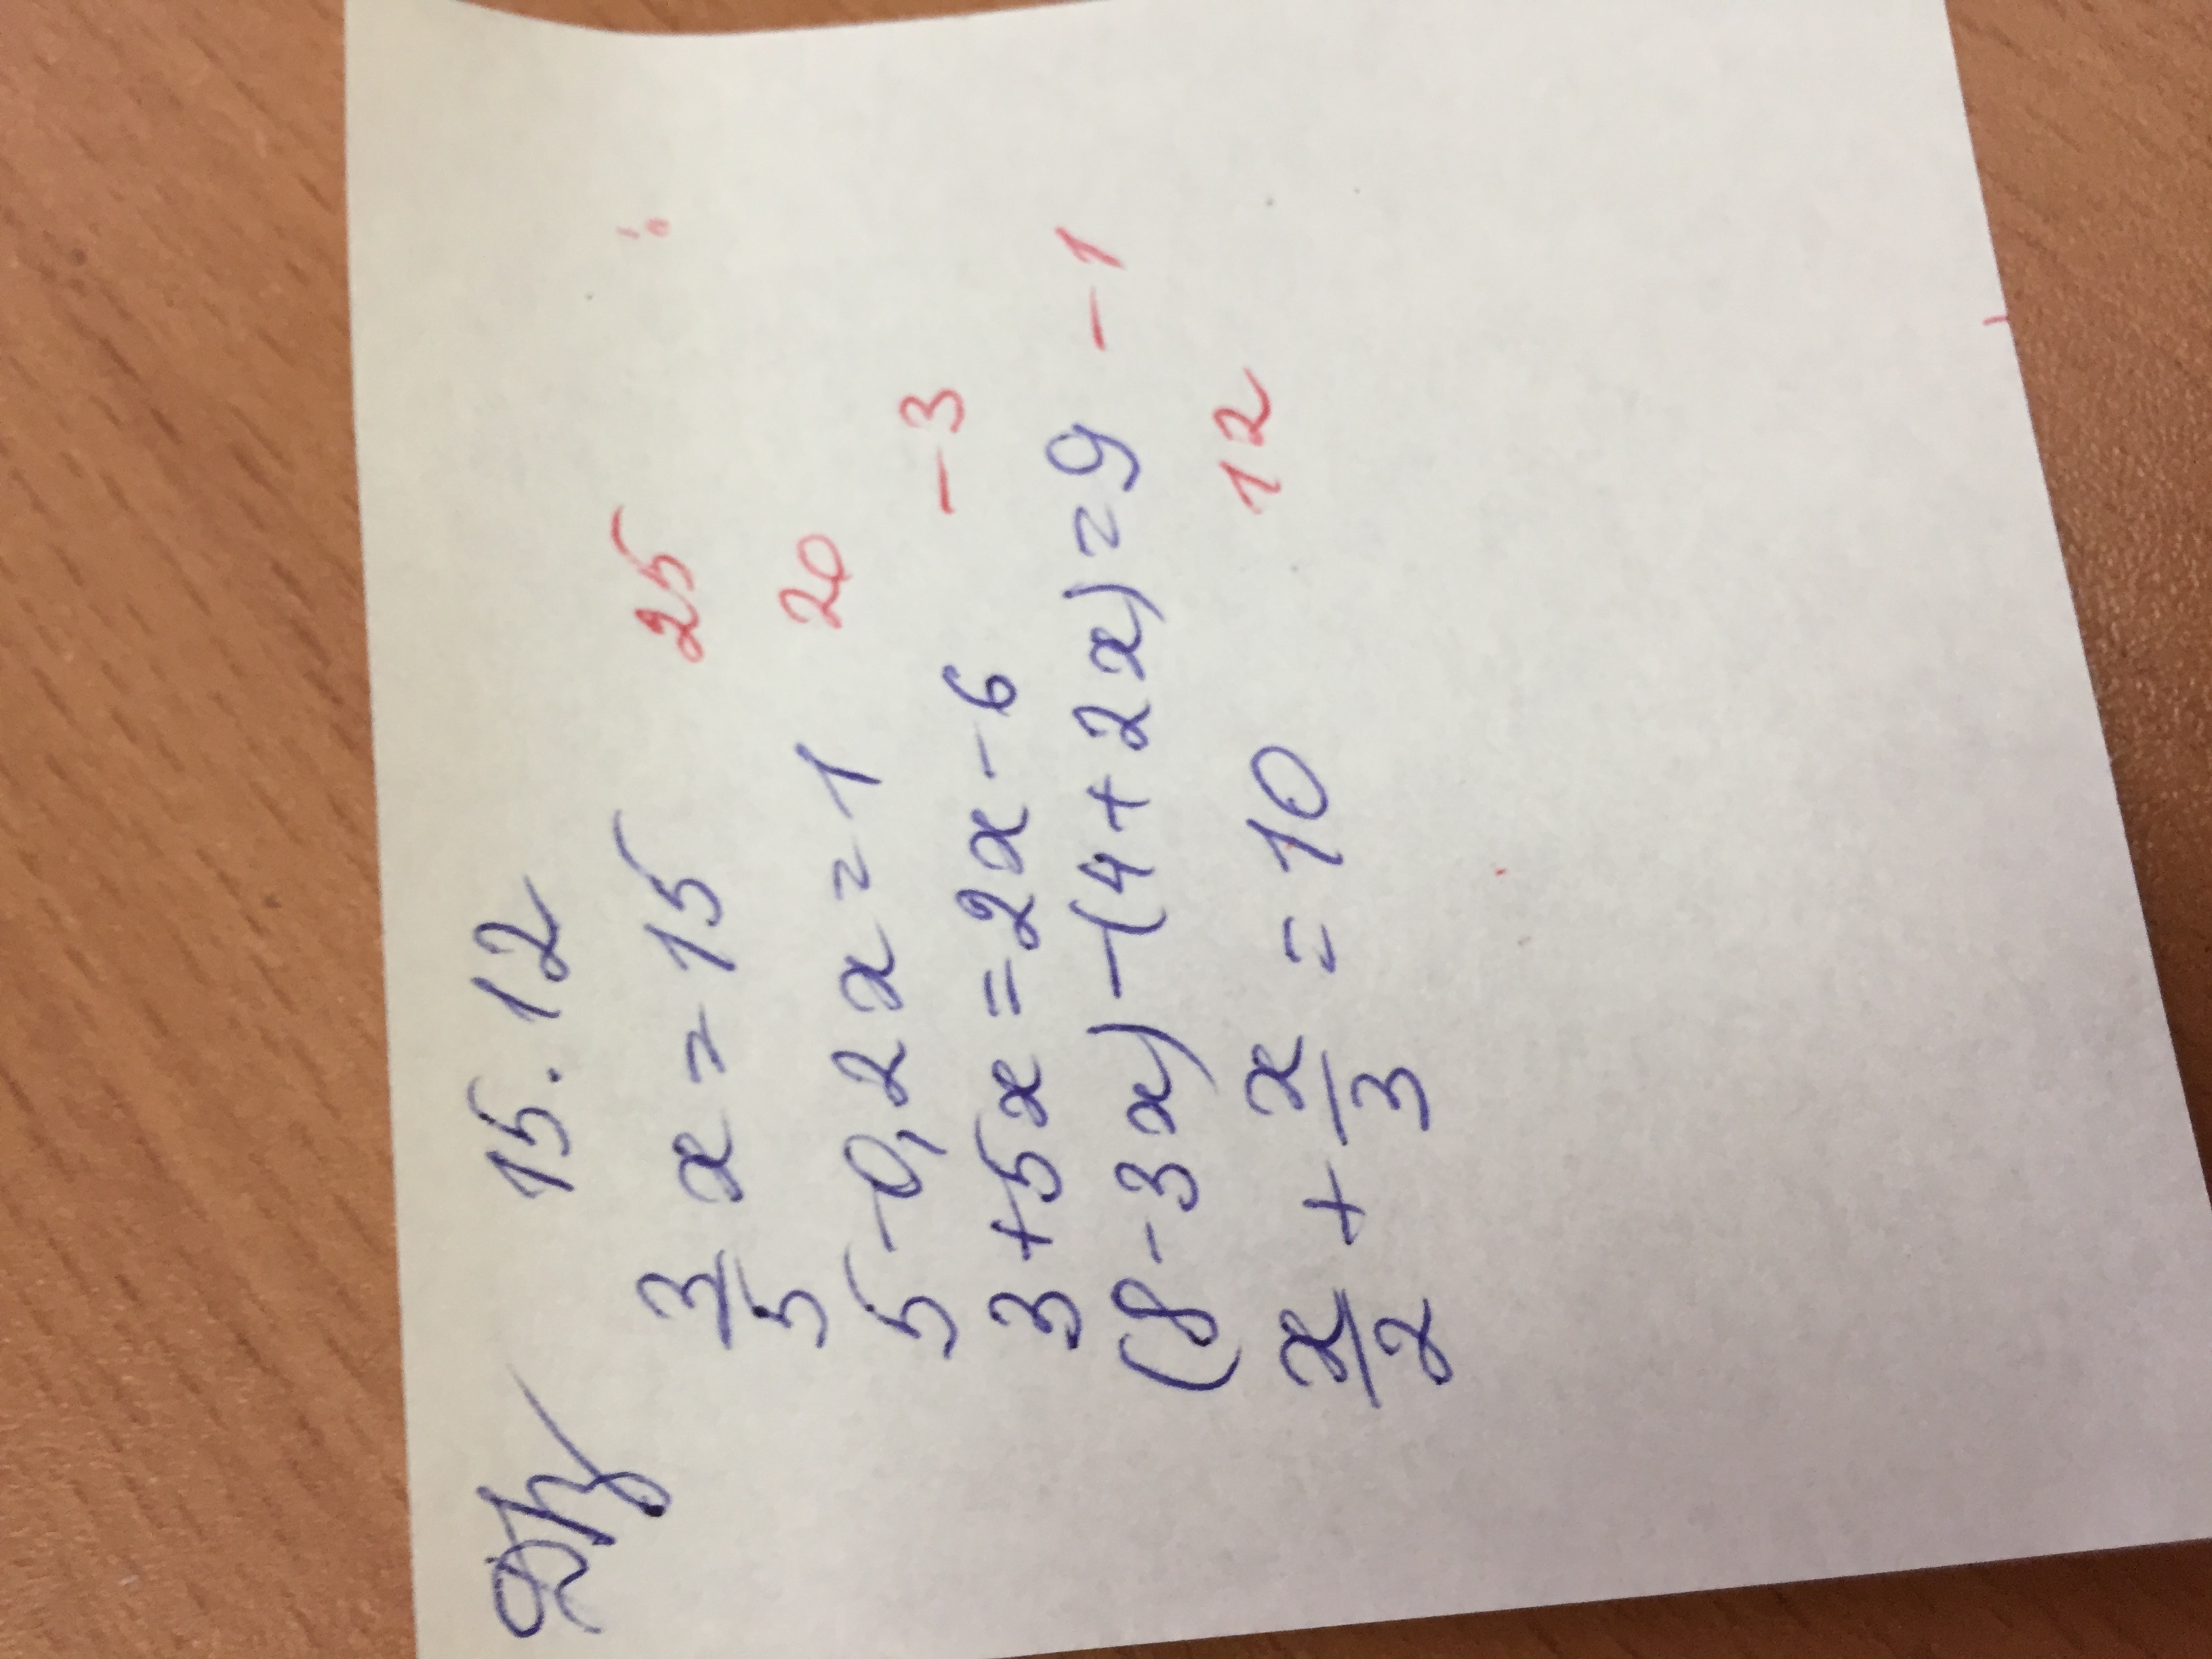 Д/з 15.12
3/5 x = 15 25
5 - 0,2x = 1 20
3 + 5x = 2x - 6 -3
(8 - 3x) - (4 + 2x) = 9 -1
x/2 + x/3 = 10 12